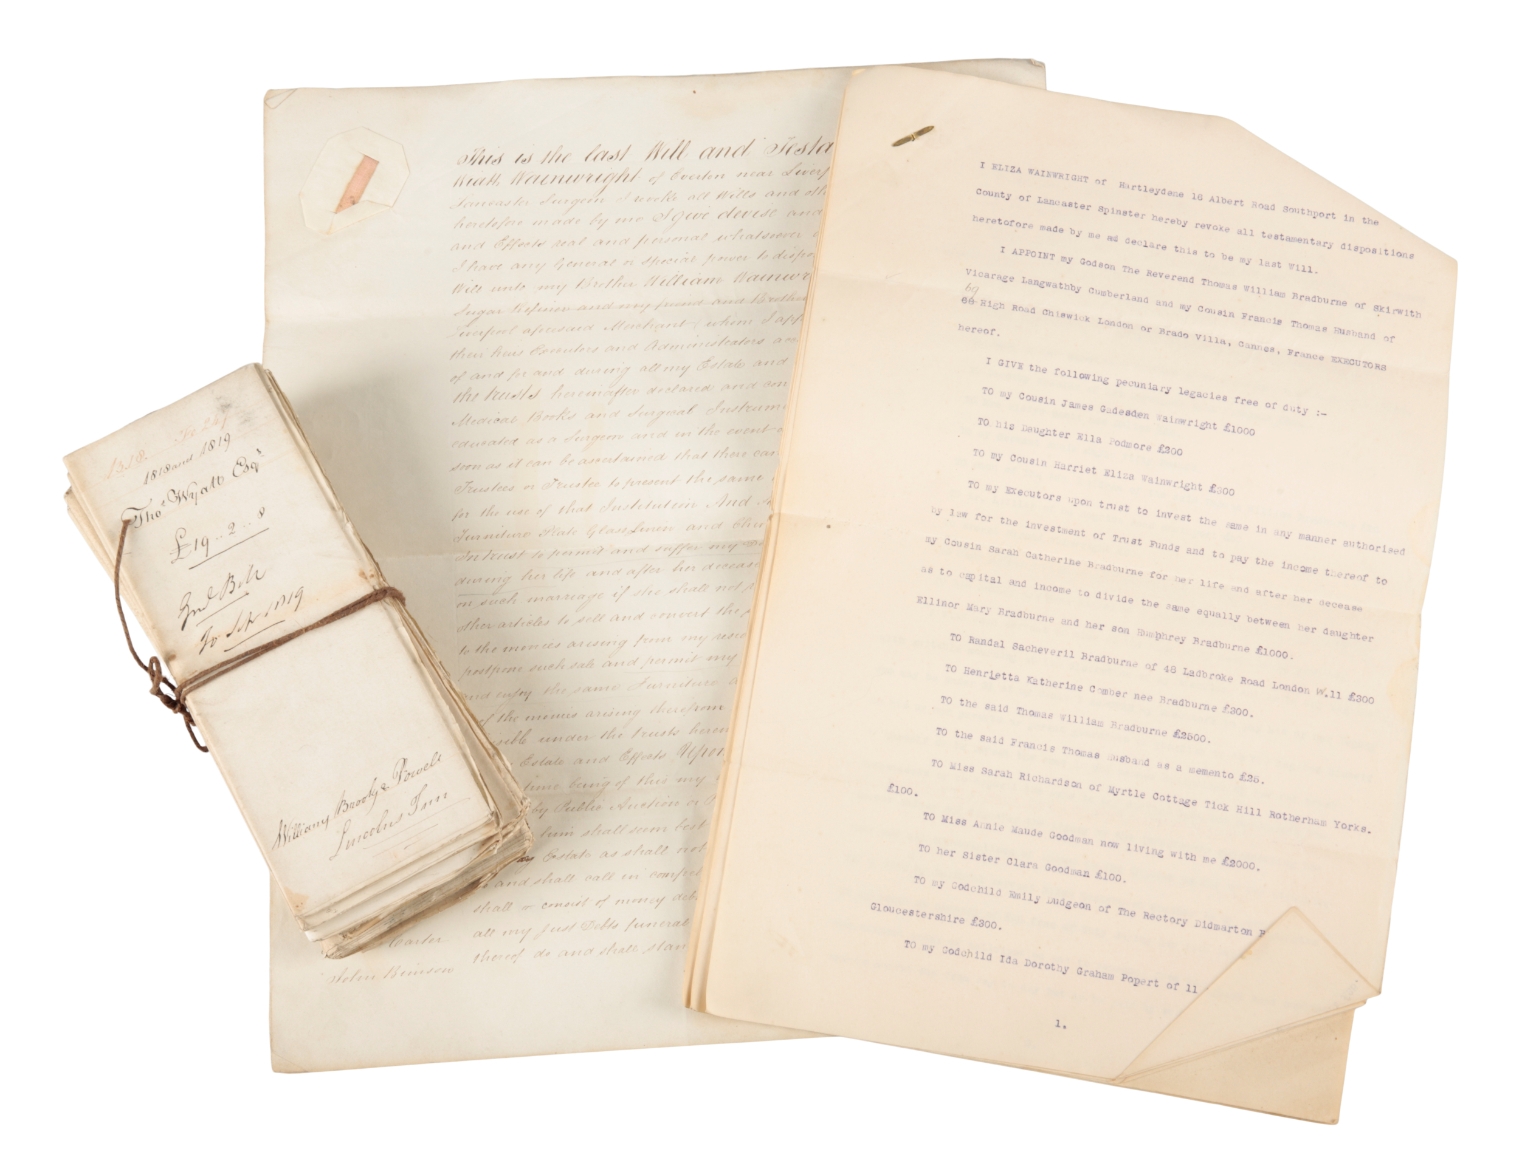 1818 Fo 249
1818 and 1819
Thos Wyatt Esqr
£19..2..8
2nd Bill
To Sep 1819
William, Brooks & Powell
Lincolns Inn
This is the last Will and Testa
Wainwright of Everton near Liverp
Lancaster Surgeon I revoke all Wills and oth
heretofore made by me I give devise and
and Effects real and personal whatsoever
I have any General or special power to dispo
Will unto my Brother William Wainwr
Sugar Refiner and my friend and Brother
aforesaid Merchant whom I app
their heirs Executors and Administrators
of and for and during all my Estate and
the trusts hereinafter declared and
Medical Books and Surgical Instrume
educated as a Surgeon and in the event
soon as it can be ascertained that there can
Trustees or Trustee to present the same
for the use of that Institution And
Furniture Plate Glass Linen and
In trust to permit and suffer my
during her life and after her decease
on such marriage if she shall not
other articles to sell and convert the
to the monies arising from my
postpone such sale and permit my
and enjoy the same Furniture
of the monies arising therefrom
under the trusts herein
Estate and Effects Upon
time being of this my
by Public Auction or
shall seem best
Estate as shall not
and shall call in
shall or consist of money
all my just Debts funeral
thereof do and shall stan
Carter
John
I ELIZA WAINWRIGHT of Hartleydene 18 Albert Road Southport in the
County of Lancaster Spinster hereby revoke all testamentary dispositions
heretofore made by me ad declare this to be my last Will.
I APPOINT my Godson The Reverend Thomas William Bradburne of Skirwith
Vicarage Langwathby Cumberland and my Cousin Francis Thomas Husband of
69
High Road Chiswick London or Brado Villa, Cannes, France EXECUTORS
hereof.
I GIVE the following pecuniary legacies free of duty :-
TO my Cousin James Gadesden Wainwright £1000
TO his Daughter Ella Podmore £200
TO my Cousin Harriet Eliza Wainwright £200
TO my Executors upon trust to invest the same in any manner authorised
by law for the investment of Trust Funds and to pay the income thereof to
my Cousin Sarah Catherine Bradburne for her life and after her decease
as to capital and income to divide the same equally between her daughter
Ellinor Mary Bradburne and her son Humphrey Bradburne £1000.
TO Randal Sacheveril Bradburne of 48 Ladbroke Road London W.11 £300
TO Henrietta Katherine Comber nee Bradburne £300.
TO the said Thomas William Bradburne £2500.
TO the said Francis Thomas Husband as a memento £25.
TO Miss Sarah Richardson of Myrtle Cottage Tick Hill Rotherham Yorks.
£100.
TO Miss Annie Maude Goodman now living with me £2000.
TO her Sister Clara Goodman £100.
TO my Godchild Emily Dudgeon of The Rectory Didmarton
Gloucestershire £300.
TO my Godchild Ida Dorothy Graham Popert of 11
1.